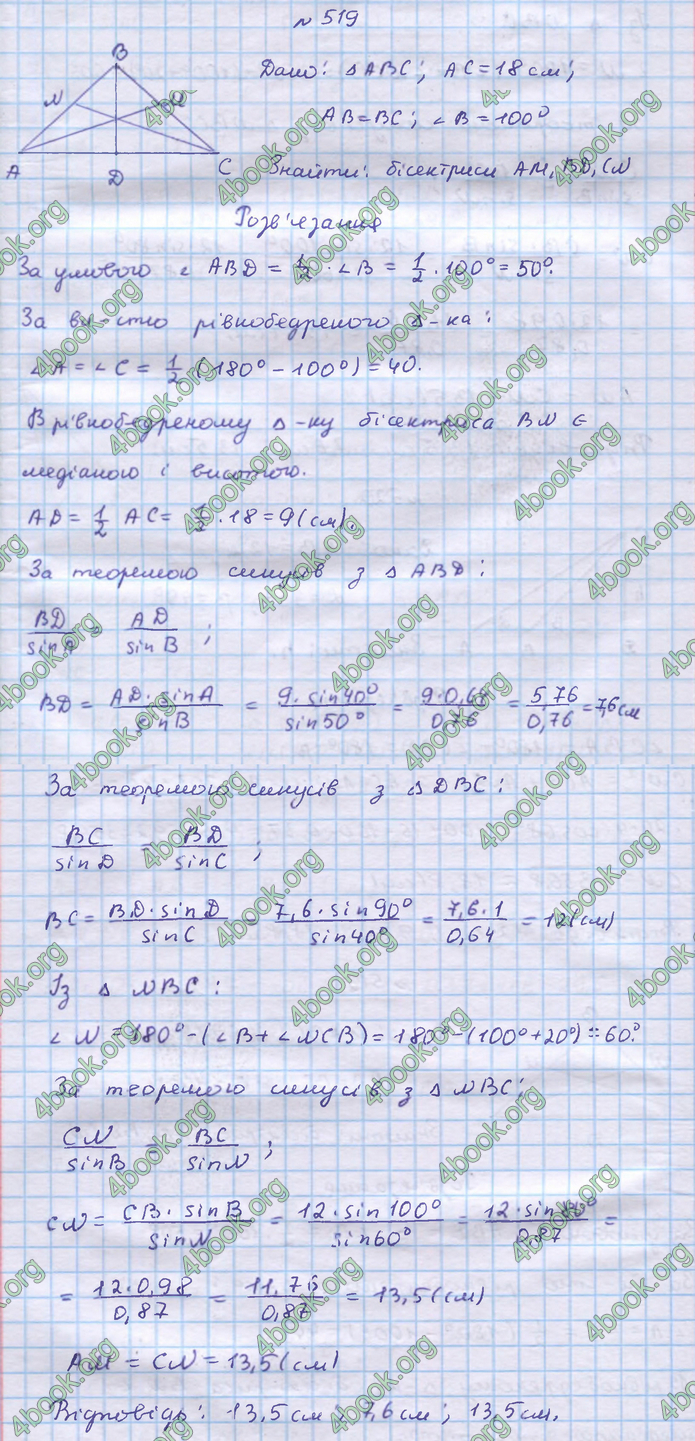 № 519
B
N M
A D C
Дано: △ABC; AC = 18 см;
AB = BC; ∠B = 100°
Знайти: бісектриси AM, BD, CN
Розв'язання
За умовою ∠ ABD = 1/2 · ∠B = 1/2 · 100° = 50°.
За вл-стю рівнобедреного △-ка:
∠A = ∠C = 1/2 (180° - 100°) = 40.
В рівнобедреному △-ку бісектриса BN є
медіаною і висотою.
AD = 1/2 AC = 1/2 · 18 = 9 (см).
За теоремою синусів з △ ABD:
BD/sin A = AD/sin B ;
BD = AD · sin A/sin B = 9 · sin 40°/sin 50° = 9 · 0,64/0,76 = 5,76/0,76 = 7,6 см
За теоремою синусів з △ DBC:
BC/sin D = BD/sin C ;
BC = BD · sin D/sin C = 7,6 · sin 90°/sin 40° = 7,6 · 1/0,64 = 12 (см)
Із △ NBC:
∠ N = 180° - (∠B + ∠NCB) = 180° - (100° + 20°) = 60°.
За теоремою синусів з △ NBC:
CN/sin B = BC/sin N ;
CN = CB · sin B/sin N = 12 · sin 100°/sin 60° = 12 · sin 80°/0,87 =
= 12 · 0,98/0,87 = 11,76/0,87 = 13,5 (см)
AM = CN = 13,5 (см)
Відповідь: 13,5 см; 7,6 см; 13,5 см.
4book.org